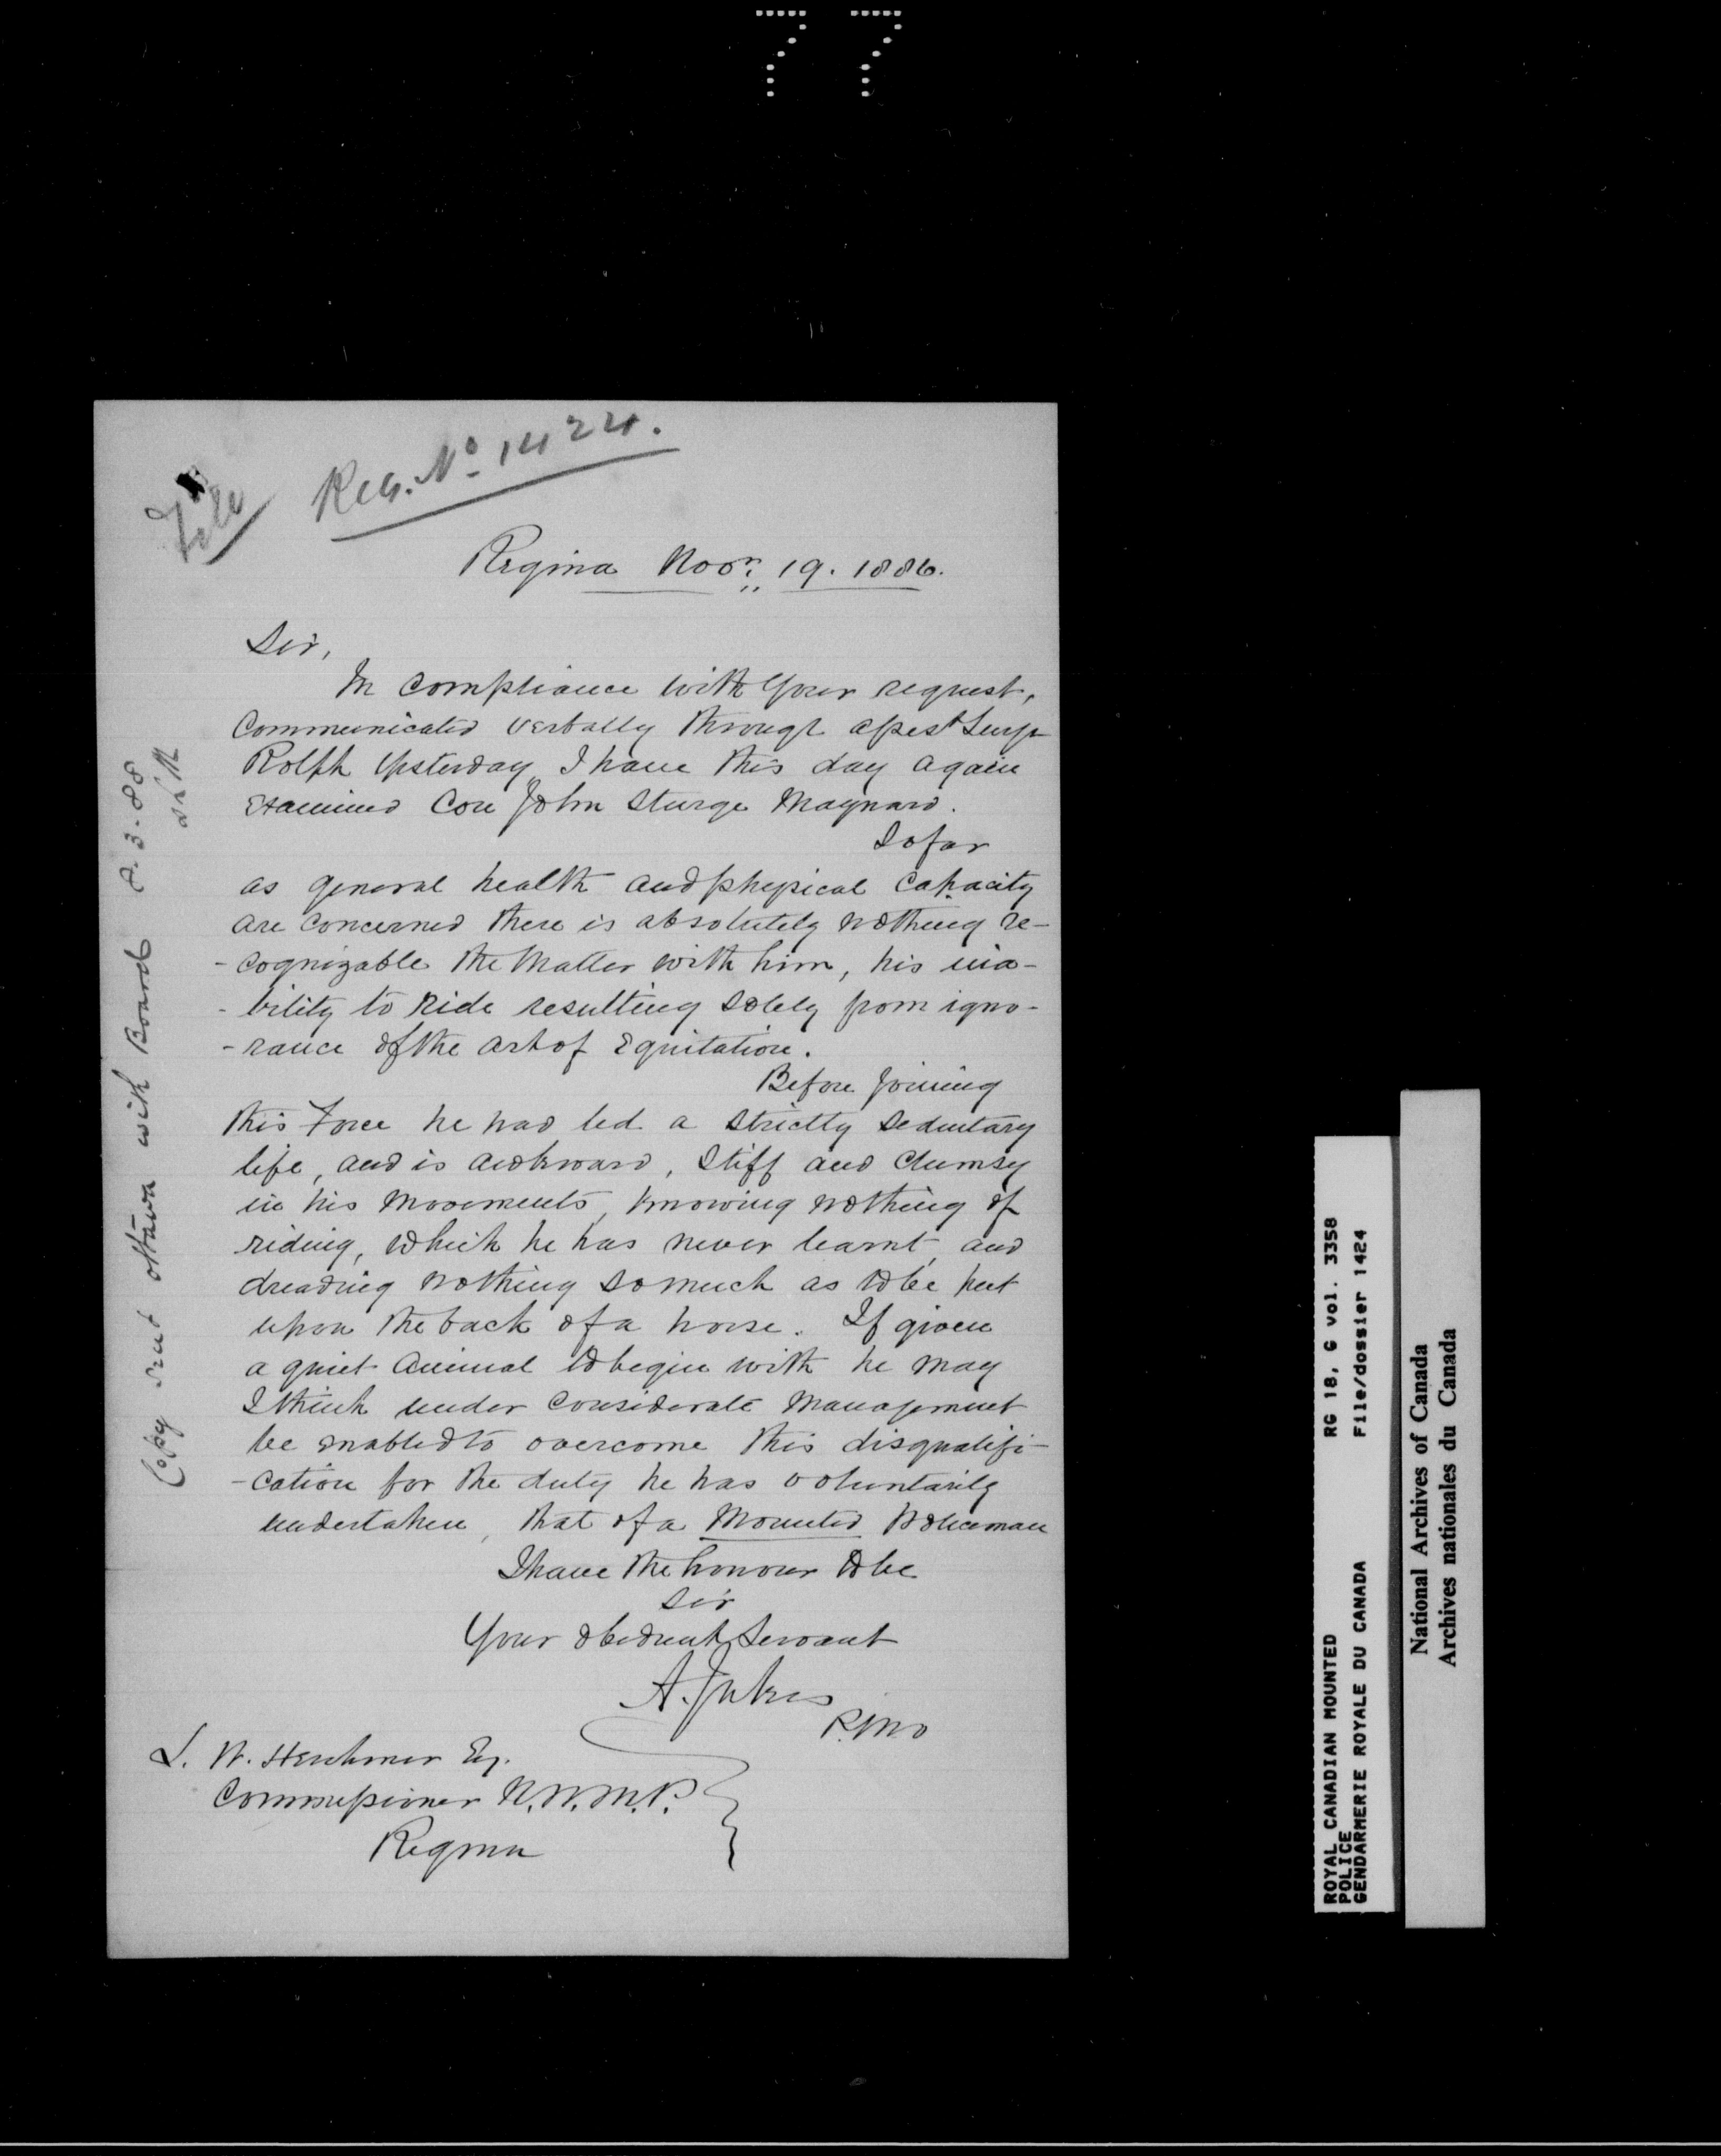 77
File
Reg. No 1424.
Regina Novr. 19. 1886.
Sir,
In compliance with your request,
Communicated verbally through Assist Surgn
Rolph yesterday, I have this day again
examined Con John Sturge Maynard.
So far
as general health and physical capacity
are concerned there is absolutely nothing re-
-cognizable the matter with him, his ina-
-bility to ride resulting solely from igno-
-rance of the art of Equitation.
Before joining
this Force he had led a strictly sedentary
life, and is awkward, stiff and clumsy
in his movements, knowing nothing of
riding, which he has never learnt, and
dreading nothing so much as to be put
upon the back of a horse. If given
a quiet animal to begin with he may
I think under considerate management
be enabled to overcome this disqualifi-
-cation for the duty he has voluntarily
undertaken, that of a Mounted Policeman
I have the honour to be
Sir
Your obedient Servant
A. Jukes
L. W. Herchmer Esq.
Commissioner N.W.M.P.
Regina
Copy sent Ottawa with Board 8.3.88
ROYAL CANADIAN MOUNTED POLICE
GENDARMERIE ROYALE DU CANADA
RG 18, G vol. 3358
File/dossier 1424
National Archives of Canada
Archives nationales du Canada